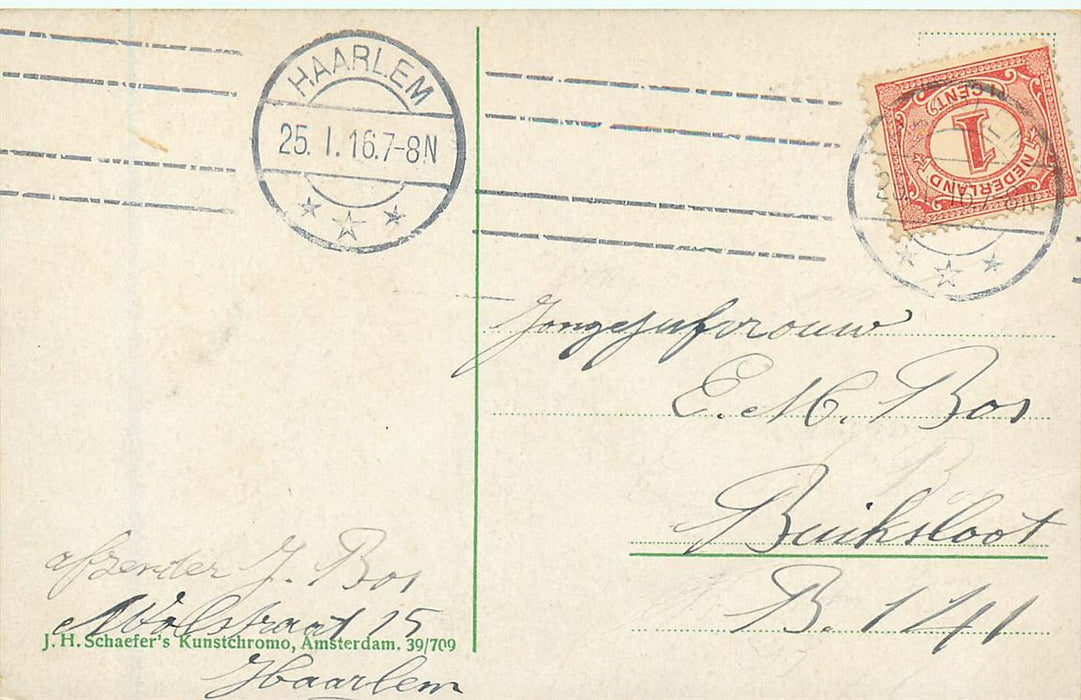 HAARLEM
25. I. 16.7-8N
1 CENT
NEDERLAND
Jongejufvrouw
E. M. Bos
Buiksloot
B. 141
afzender J. Bos
15
J. H. Schaefer's Kunstchromo, Amsterdam. 39/709
Haarlem